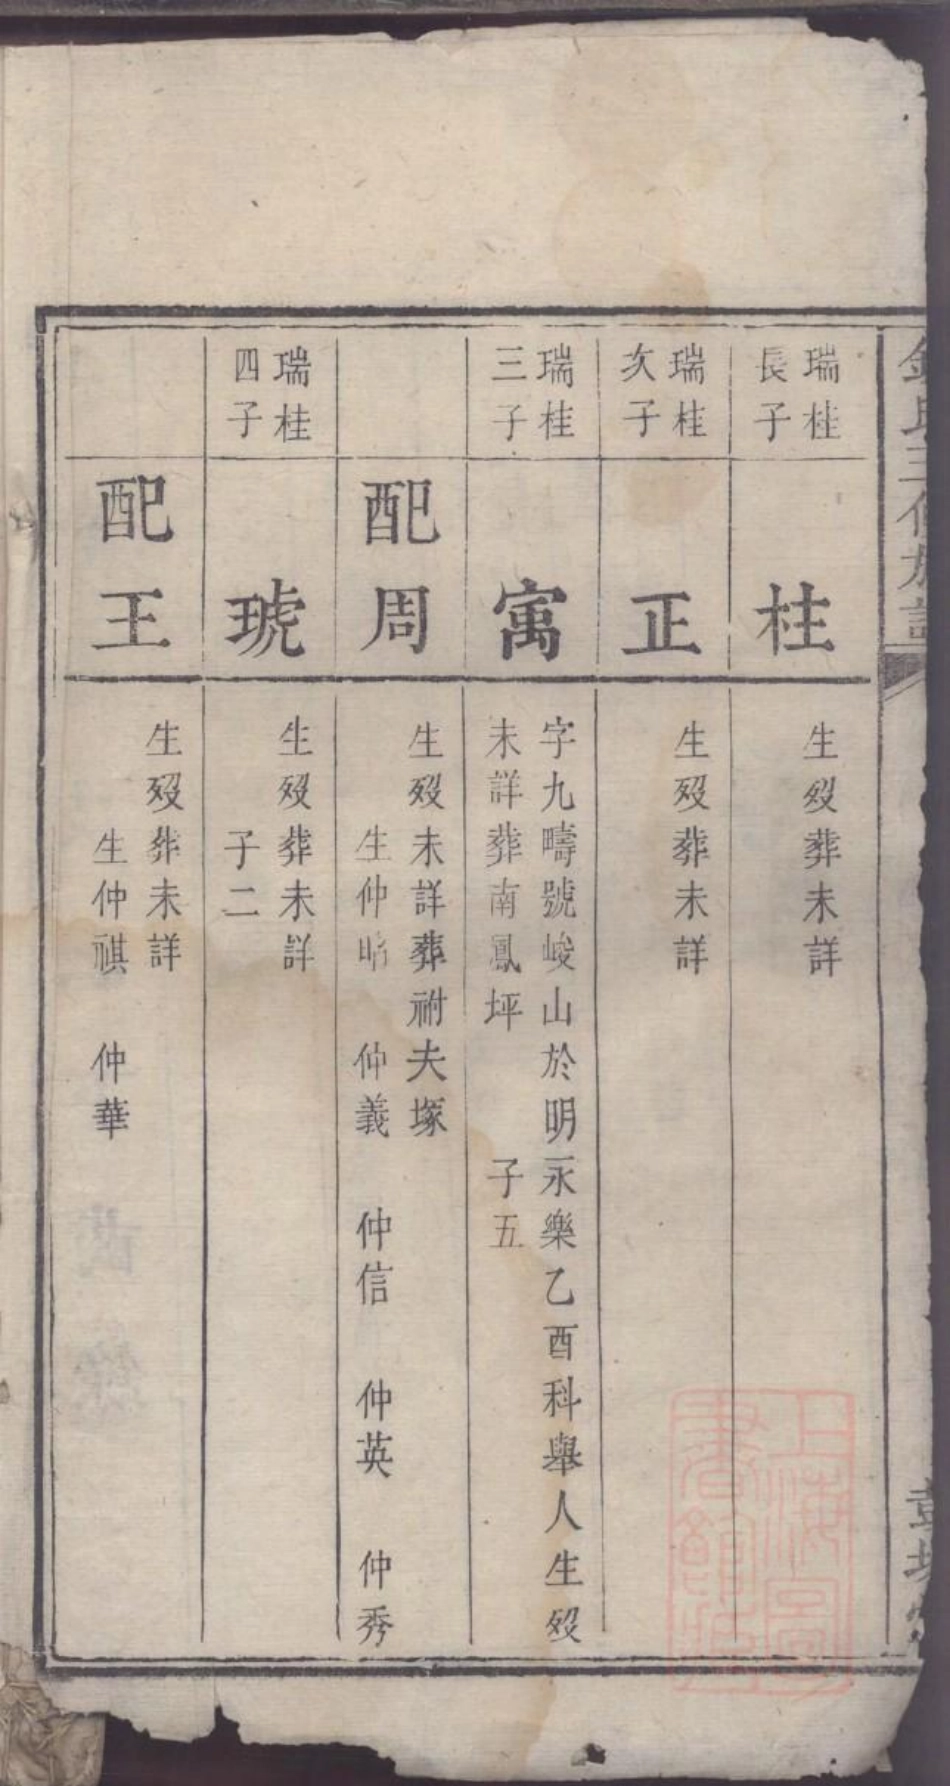 瑞桂
長子
柱
生歿葬未詳
瑞桂
次子
正
生歿葬未詳
瑞桂
三子
寓
字九疇號峻山於明永樂乙酉科舉人生歿
未詳葬南鳳坪　子五
配周
生歿未詳葬祔夫塚
生仲昭　仲義　仲信　仲英　仲秀
瑞桂
四子
琥
生歿葬未詳
子二
配王
生歿葬未詳
生仲祺　仲華